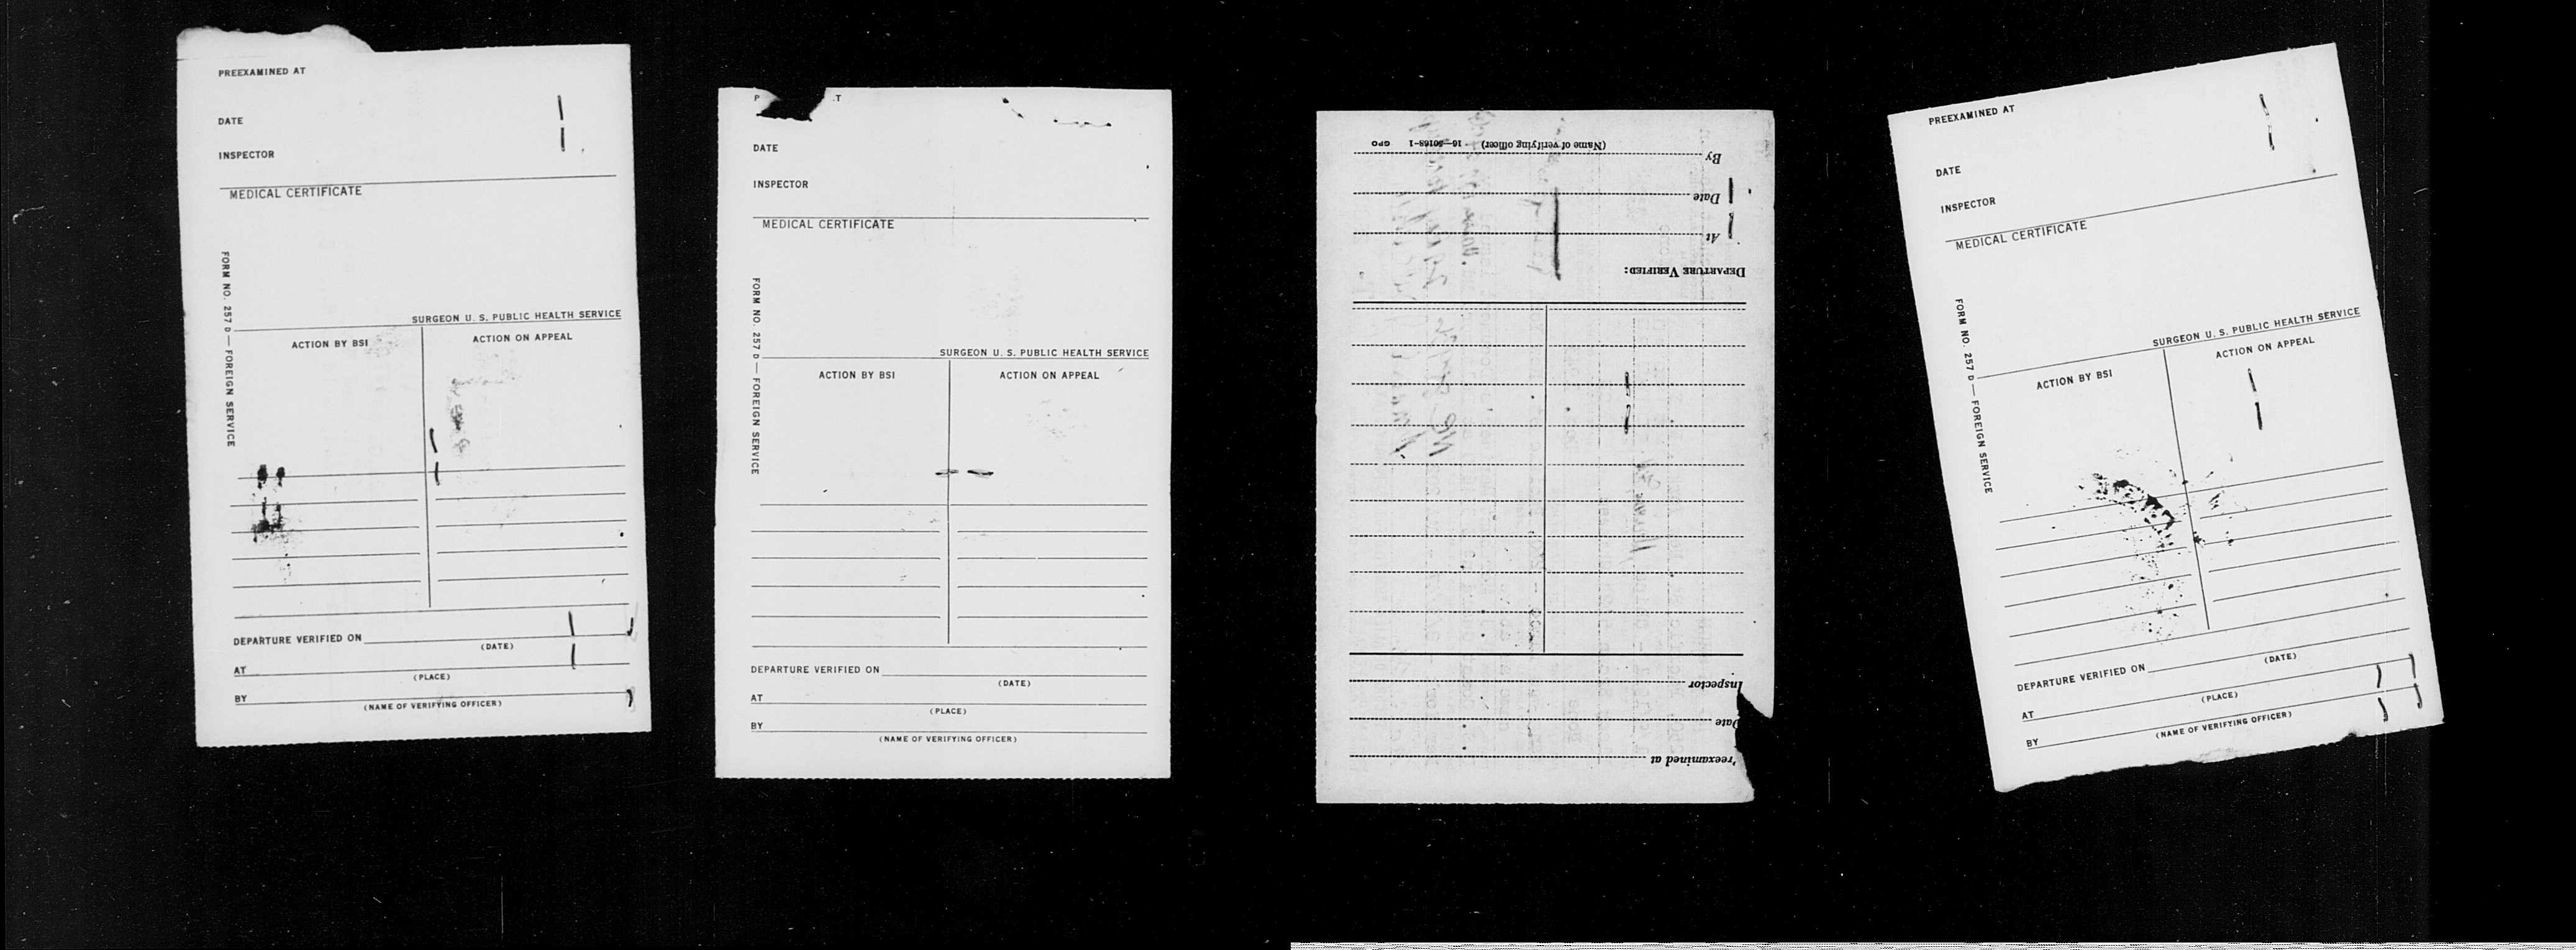 PREEXAMINED AT
DATE
INSPECTOR
MEDICAL CERTIFICATE
SURGEON U. S. PUBLIC HEALTH SERVICE
ACTION BY BSI
ACTION ON APPEAL
FORM NO. 257 D — FOREIGN SERVICE
DEPARTURE VERIFIED ON
(DATE)
AT
(PLACE)
BY
(NAME OF VERIFYING OFFICER)
P T
DATE
INSPECTOR
MEDICAL CERTIFICATE
SURGEON U. S. PUBLIC HEALTH SERVICE
ACTION BY BSI
ACTION ON APPEAL
FORM NO. 257 D — FOREIGN SERVICE
DEPARTURE VERIFIED ON
(DATE)
AT
(PLACE)
BY
(NAME OF VERIFYING OFFICER)
reexamined at
Date
Inspector
DEPARTURE VERIFIED:
At
Date
By
(Name of verifying officer) 16—50168-1 GPO
PREEXAMINED AT
DATE
INSPECTOR
MEDICAL CERTIFICATE
SURGEON U. S. PUBLIC HEALTH SERVICE
ACTION BY BSI
ACTION ON APPEAL
FORM NO. 257 D — FOREIGN SERVICE
DEPARTURE VERIFIED ON
(DATE)
AT
(PLACE)
BY
(NAME OF VERIFYING OFFICER)